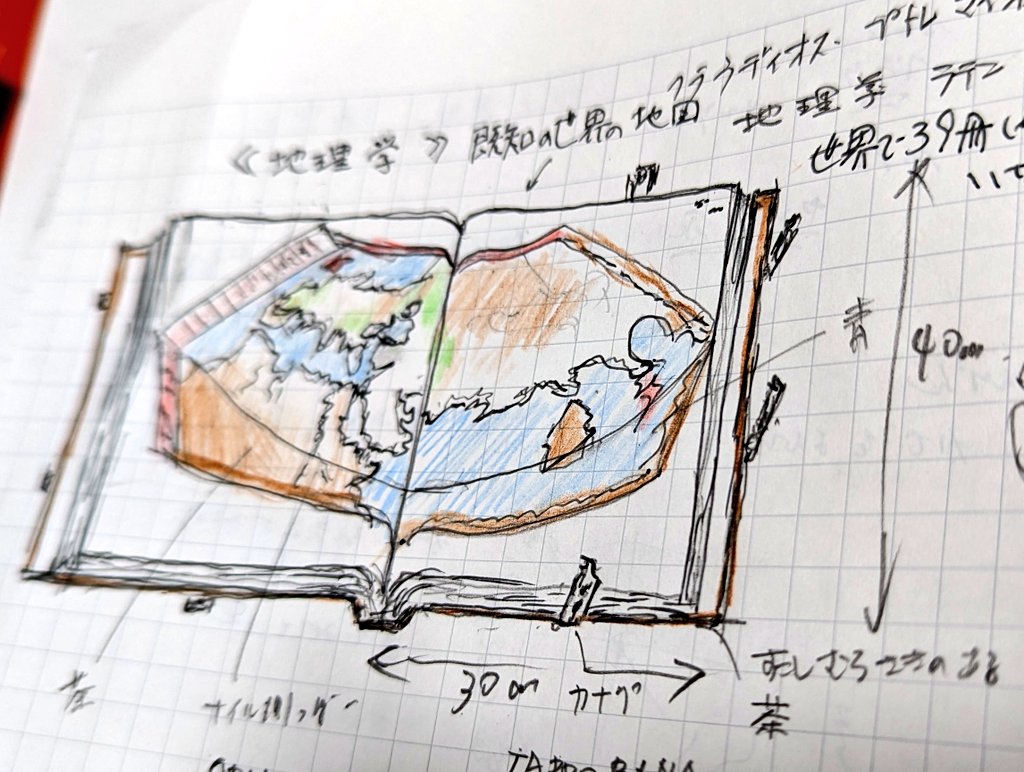 クラウディオス・プトレマイオ
《地理学》 既知の世界の地図 地理学 ラテン
世界で39冊
いて
青
40cm
茶
30cm
カナグ
すこしむらさきのある
茶
TAPROBANA